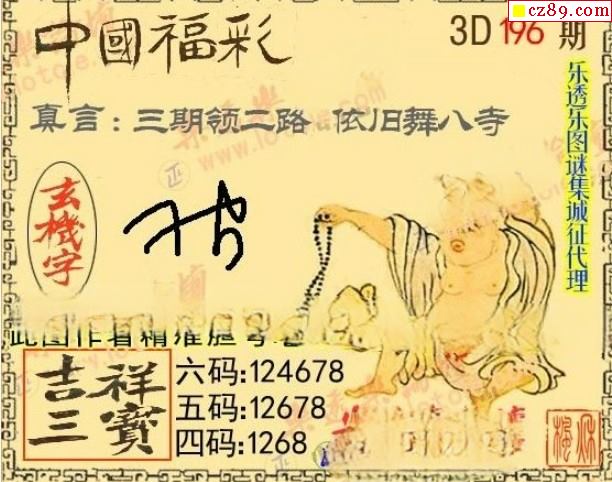 cz89.com
中國福彩
3D 196 期
真言：三期领二路 依旧舞八寺
乐透乐图谜集城征代理
玄機字
吉祥三寶
六码:124678
五码:12678
四码:1268